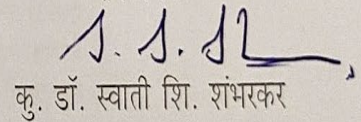 कु. डॉ. स्वाती शि. शंभरकर